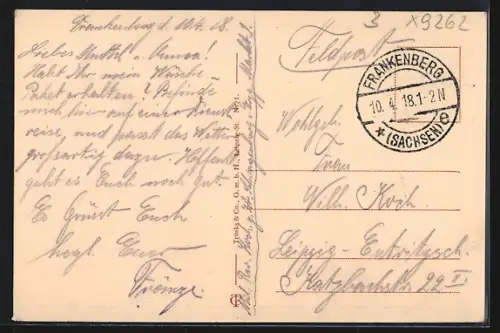 Frankenberg d. 10/4. 18.
Liebes Muttel u. Emma!
Habt Ihr mein Wäsche-
Paket erhalten? Befinde
mich hier auf einer Dienst
reise, und passt das Wetter
großartig dazu. Hoffentl.
geht es Euch noch gut.
Es Grüsst Euch
herzl. Euer
Trinks & Co., G. m. b. H., Leipzig
3
X9262
Feldpost
FRANKENBERG
10. 4. 18. 1-2 N
(SACHSEN) e
Wohlgeb.
Frau
Wilh. Koch
Leipzig-Eutritzsch.
Katzbachstr. 22 II.